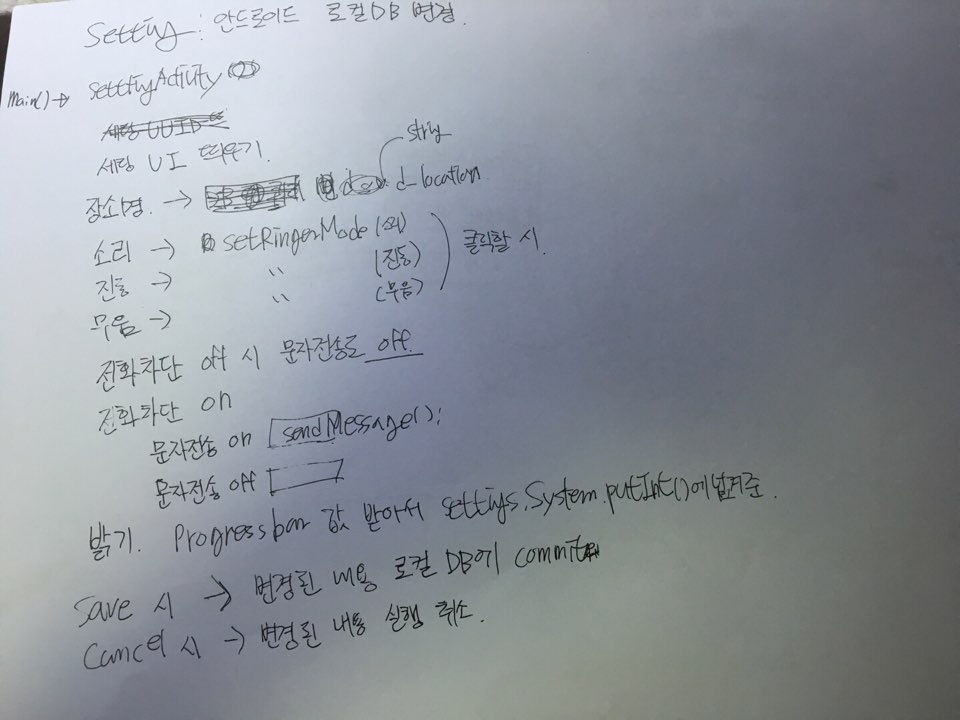 Setting : 안드로이드 로컬 DB 변경.
Main() → settingActivity
세팅 UI 띄우기.
string
장소명. → d_location.
소리 → setRingerMode (소리)
진동 → " (진동) 클릭할 시.
무음 → " (무음)
전화차단 off 시 문자전송도 off.
전화차단 on
문자전송 on sendMessage();
문자전송 off
밝기. Progressbar 값 받아서 settings.System.putInt()에 넘겨준.
Save 시 → 변경된 내용 로컬 DB에 commit
Cancel 시 → 변경된 내용 실행 취소.